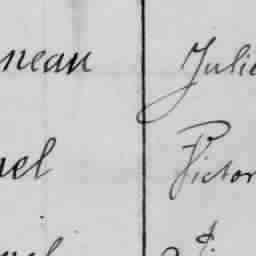 neau Julie
nel Victor